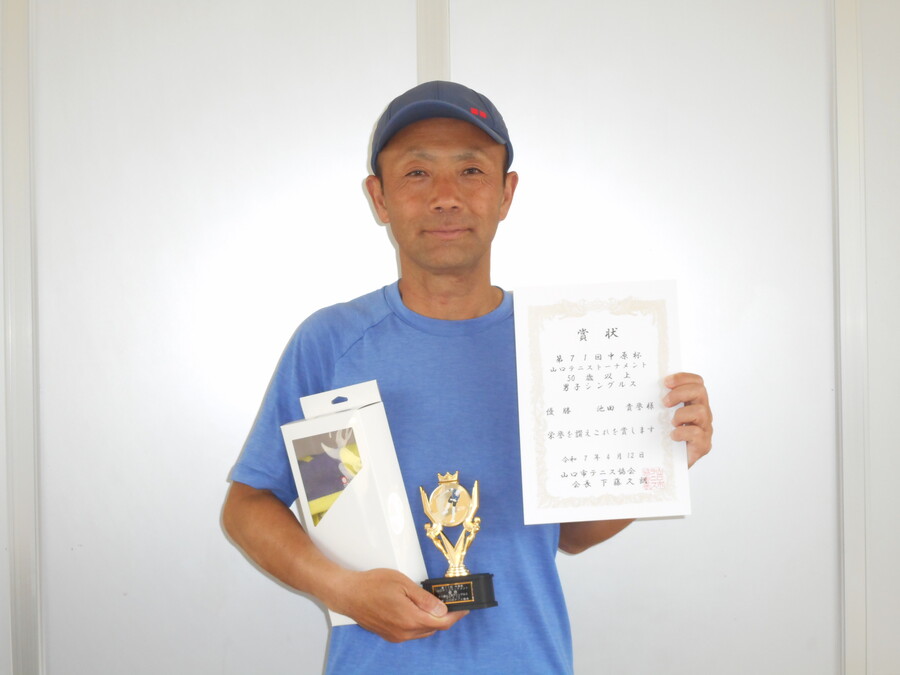 賞状
第71回中原杯
山口テニストーナメント
50歳以上
男子シングルス
優勝 池田 貴誉様
栄誉を讃えこれを賞します
令和7年4月12日
山口市テニス協会
会長 下藤久朗